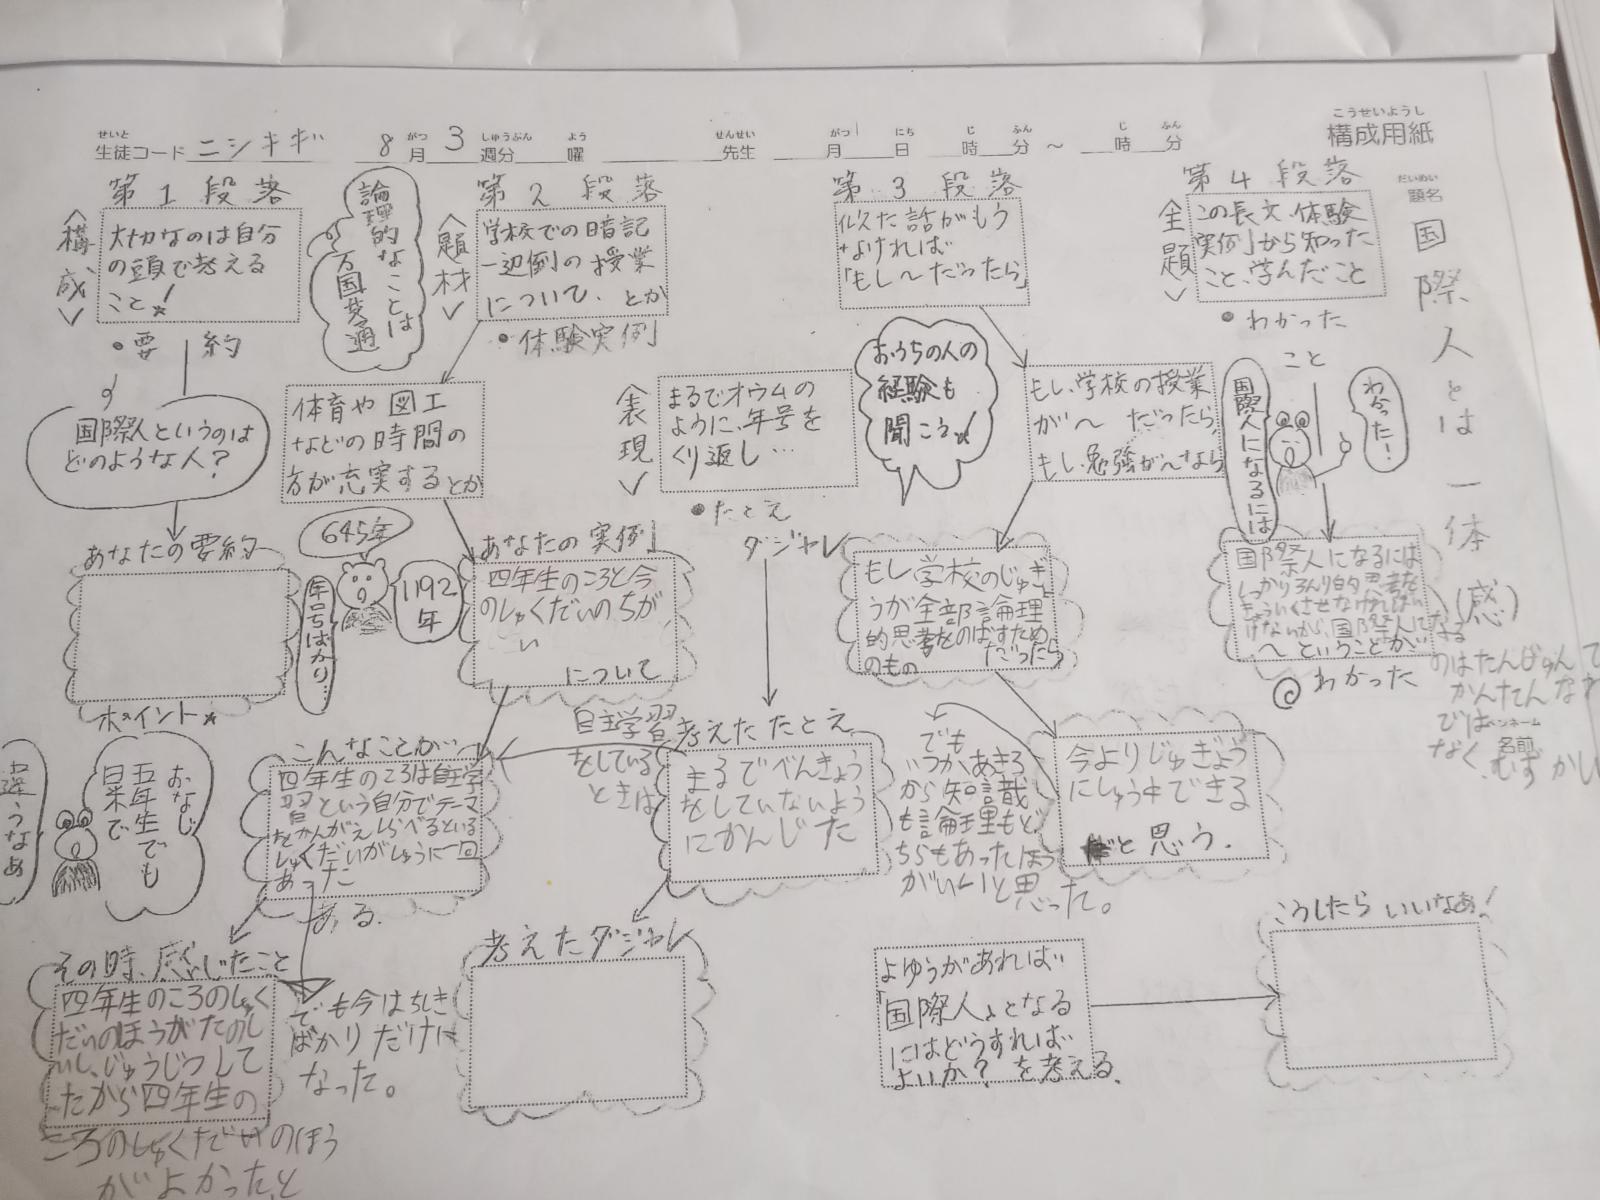 こうせいようし
構成用紙
せいと がつ しゅうぶん よう せんせい がつ にち じ ふん じ ふん
生徒コード ニシキギ 8月3週分 曜 先生 月 日 時 分 ～ 時 分
だいめい
題名
国際人とは一体
(感)
ペンネーム
名前
第1段落
<構成>
大切なのは自分
の頭で考える
こと!
・要約
国際人というのは
どのような人?
あなたの要約
ポイント
おなじ
五年生でも
日米で
違うなぁ
論理的なことは
万国共通
第2段落
<題材>
学校での暗記
一辺倒の授業
について、とか
・体験実例
体育や図工
などの時間の
方が充実するとか
645年
1192年
年号ばかり…
あなたの実例
四年生のころと今
のしゅくだいのちが
い
について
こんなことが…
四年生のころは自主学
習という自分でテーマ
をかんがえしらべるという
しゅくだいがしゅうに一回
あった
ある.
その時、感じたこと
四年生のころのしゅく
だいのほうがたのし
いし、じゅうじつして
たから四年生の
ころのしゅくだいのほう
がよかったと
でも今はちしき
ばかりだけに
なった。
<表現>
まるでオウムの
ように、年号を
くり返し…
・たとえ
ダジャレ
自主学習
をしている
ときは
考えたたとえ
まるでべんきょう
をしていないよう
にかんじた
考えたダジャレ
第3段落
似た話がもう
なければ
「もし～だったら」
おうちの人の
経験も
聞こう!
もし、学校の授業
が～だったら、
もし、勉強が～なら
もし学校のじゅぎょ
うが全部論理
的思考をのばすため
のものだったら
今よりじゅぎょう
にしゅう中できる
と思う.
でも
いつかあきる
から知識
も論理もど
ちらもあったほう
がいいと思った。
よゆうがあれば
「国際人」となる
にはどうすれば
よいか?を考える.
こうしたらいいなぁ!
第4段落
<全題>
この長文、体験
実例」から知った
こと、学んだこと
・わかった
こと
国際人になるには
わかった!
国際人になるには
しっかりろんり的思考を
きょういくさせなければい
けないから、国際人になる
～ということが
わかった
のはたんじゅんで
かんたんなわ
ではなく、むずかしい